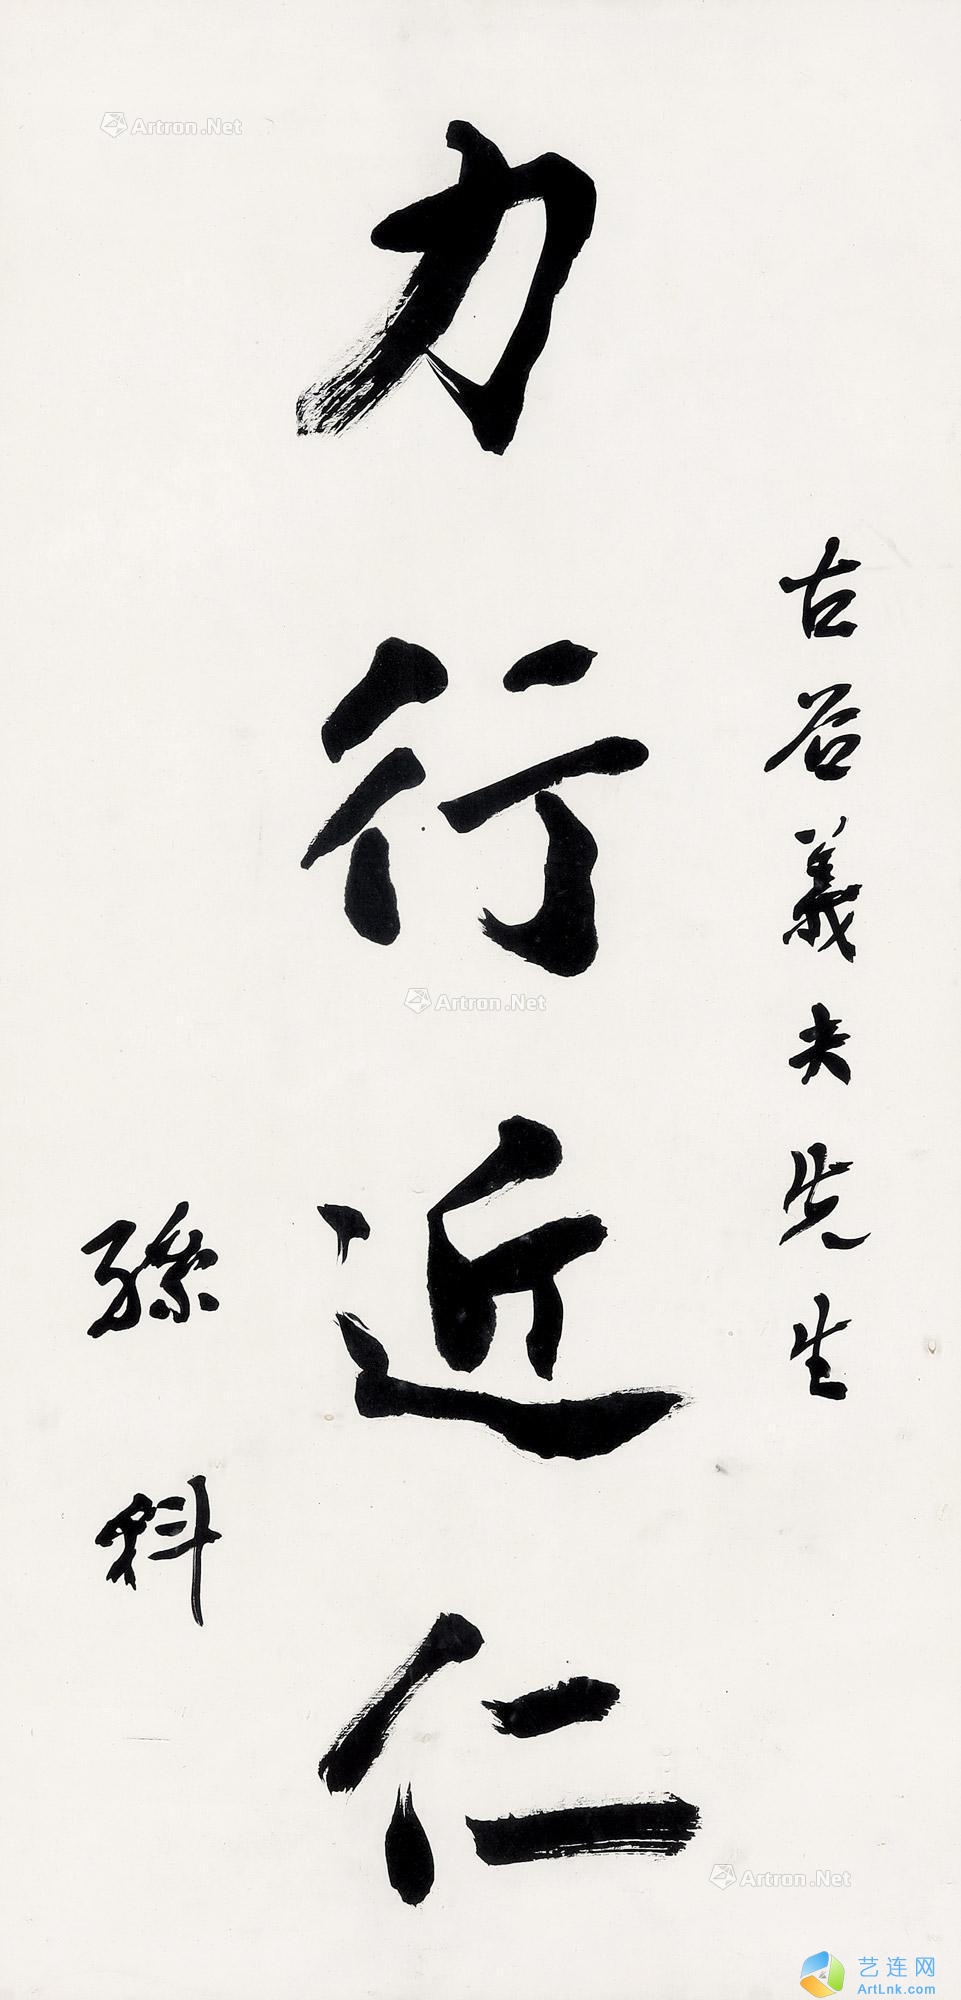 古谷義夫先生
力行近仁
孫科
Artron.Net
Artron.Net
Artron.Net
艺连网
ArtLnk.com